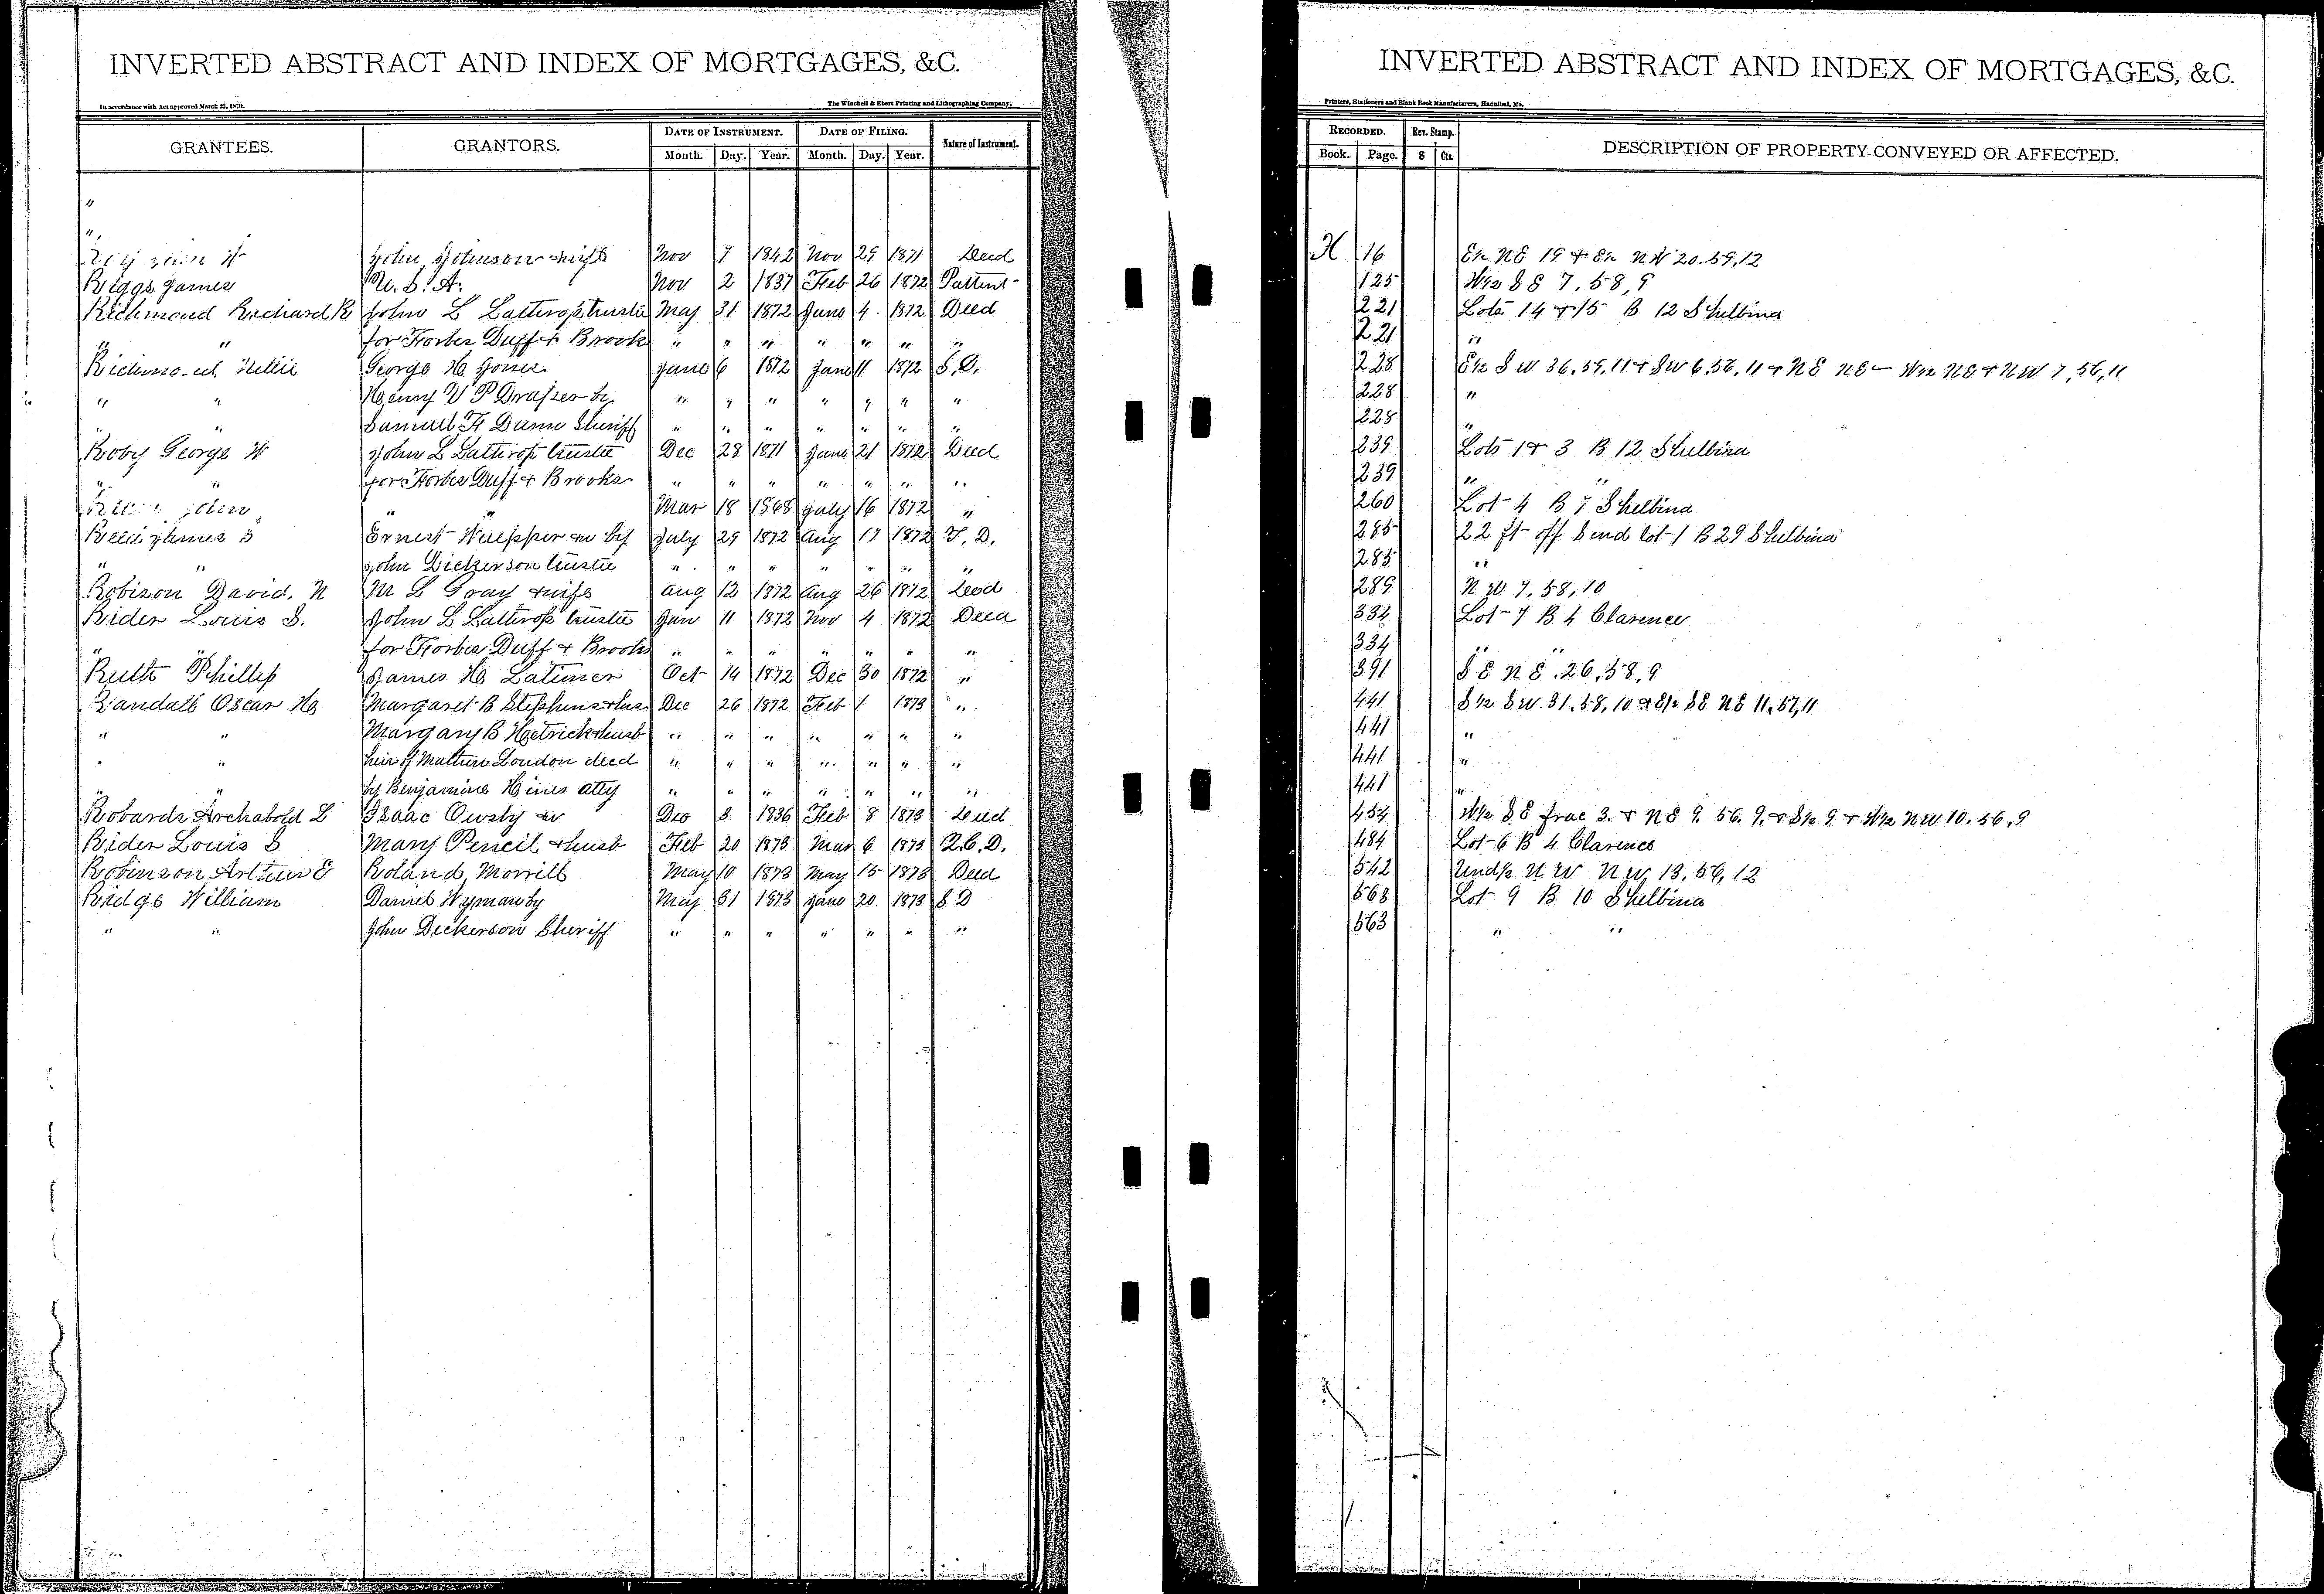 INVERTED ABSTRACT AND INDEX OF MORTGAGES, &C.
In accordance with Act approved March 25, 1870.
The Winchell & Ebert Printing and Lithographing Company,
GRANTEES. GRANTORS. DATE OF INSTRUMENT. DATE OF FILING. Nature of Instrument.
Month. Day. Year. Month. Day. Year.
"
"
John Johnson & wife Nov 7 1842 Nov 29 1871 Deed
Riggs James U. S. A. Nov 2 1837 Feb 26 1872 Pattent
Richmond Richard R John L Lathrop trustee May 31 1872 June 4 1872 Deed
" " for Forbes Duff & Brooks " " " " " " "
Richmond Nellie George H Jones June 6 1872 June 11 1872 S. D.
" " Henry V P Draper by " " " " " " "
" " Samuel F Dunn Sheriff " " " " " " "
Roby George W John L Lathrop trustee Dec 28 1871 June 21 1872 Deed
" " for Forbes Duff & Brooks " " " " " " "
John " " Mar 18 1868 July 16 1872 "
Reed James S Ernest by July 29 1872 Aug 17 1872 T. D.
" " John Dickerson trustee " " " " " " "
Robison David. N M L Gray & wife Aug 12 1872 Aug 26 1872 Deed
Rider Louis S. John L Lathrop trustee Jan 11 1872 Nov 4 1872 Deed
" " for Forbes Duff & Brooks " " " " " " "
Ruth Phillip James H Latimer Oct 14 1872 Dec 30 1872 "
Randall Oscar H Margaret B Stephens & hus Dec 26 1872 Feb 1 1873 "
" " Margary B Hetrick & husb " " " " " " "
" " heir of Mathew London decd " " " " " " "
" " by Benjamine Hines atty " " " " " " "
Robards Archabold L Isaac Owsby Dec 8 1836 Feb 8 1873 Deed
Rider Louis S Mary Pencil & husb Feb 20 1873 Mar 6 1873 Q. C. D.
Robinson Arthur E Roland Morrill May 10 1873 May 15 1873 Deed
Ridge William Daniel Wyman by May 31 1873 June 20 1873 S D
" " John Dickerson Sheriff " " " " " " "
INVERTED ABSTRACT AND INDEX OF MORTGAGES, &C.
Printers, Stationers and Blank Book Manufacturers, Hannibal, Mo.
RECORDED. Rev. Stamp. DESCRIPTION OF PROPERTY CONVEYED OR AFFECTED.
Book. Page. $ Cts.
H 16 E½ NE 19 & E½ NW 20.59,12
125 W½ SE 7, 58, 9
221 Lots 14 & 15 B 12 Shelbina
221 "
228 E½ SW 36, 59, 11 & SW 6, 56, 11 & NE NE & W½ NE & NW 7, 56, 11
228 "
228 "
239 Lots 1 & 3 B 12 Shelbina
239 " "
260 Lot 4 B 7 Shelbina
285 22 ft off S end lot 1 B 29 Shelbina
285 "
289 NW 7, 58, 10
334 Lot 7 B 4 Clarence
334 " "
391 SE NE. 26, 58, 9
441 S½ SW. 31. 58, 10 & E½ SE NE 11, 57, 11
441 "
441 "
441 "
454 W½ SE frac 3. & NE 9. 56. 9. & S½ 9 & W½ NW 10. 56, 9
484 Lot 6 B 4 Clarence
542 Und½ NW NW 13, 56, 12
563 Lot 9 B 10 Shelbina
563 " "